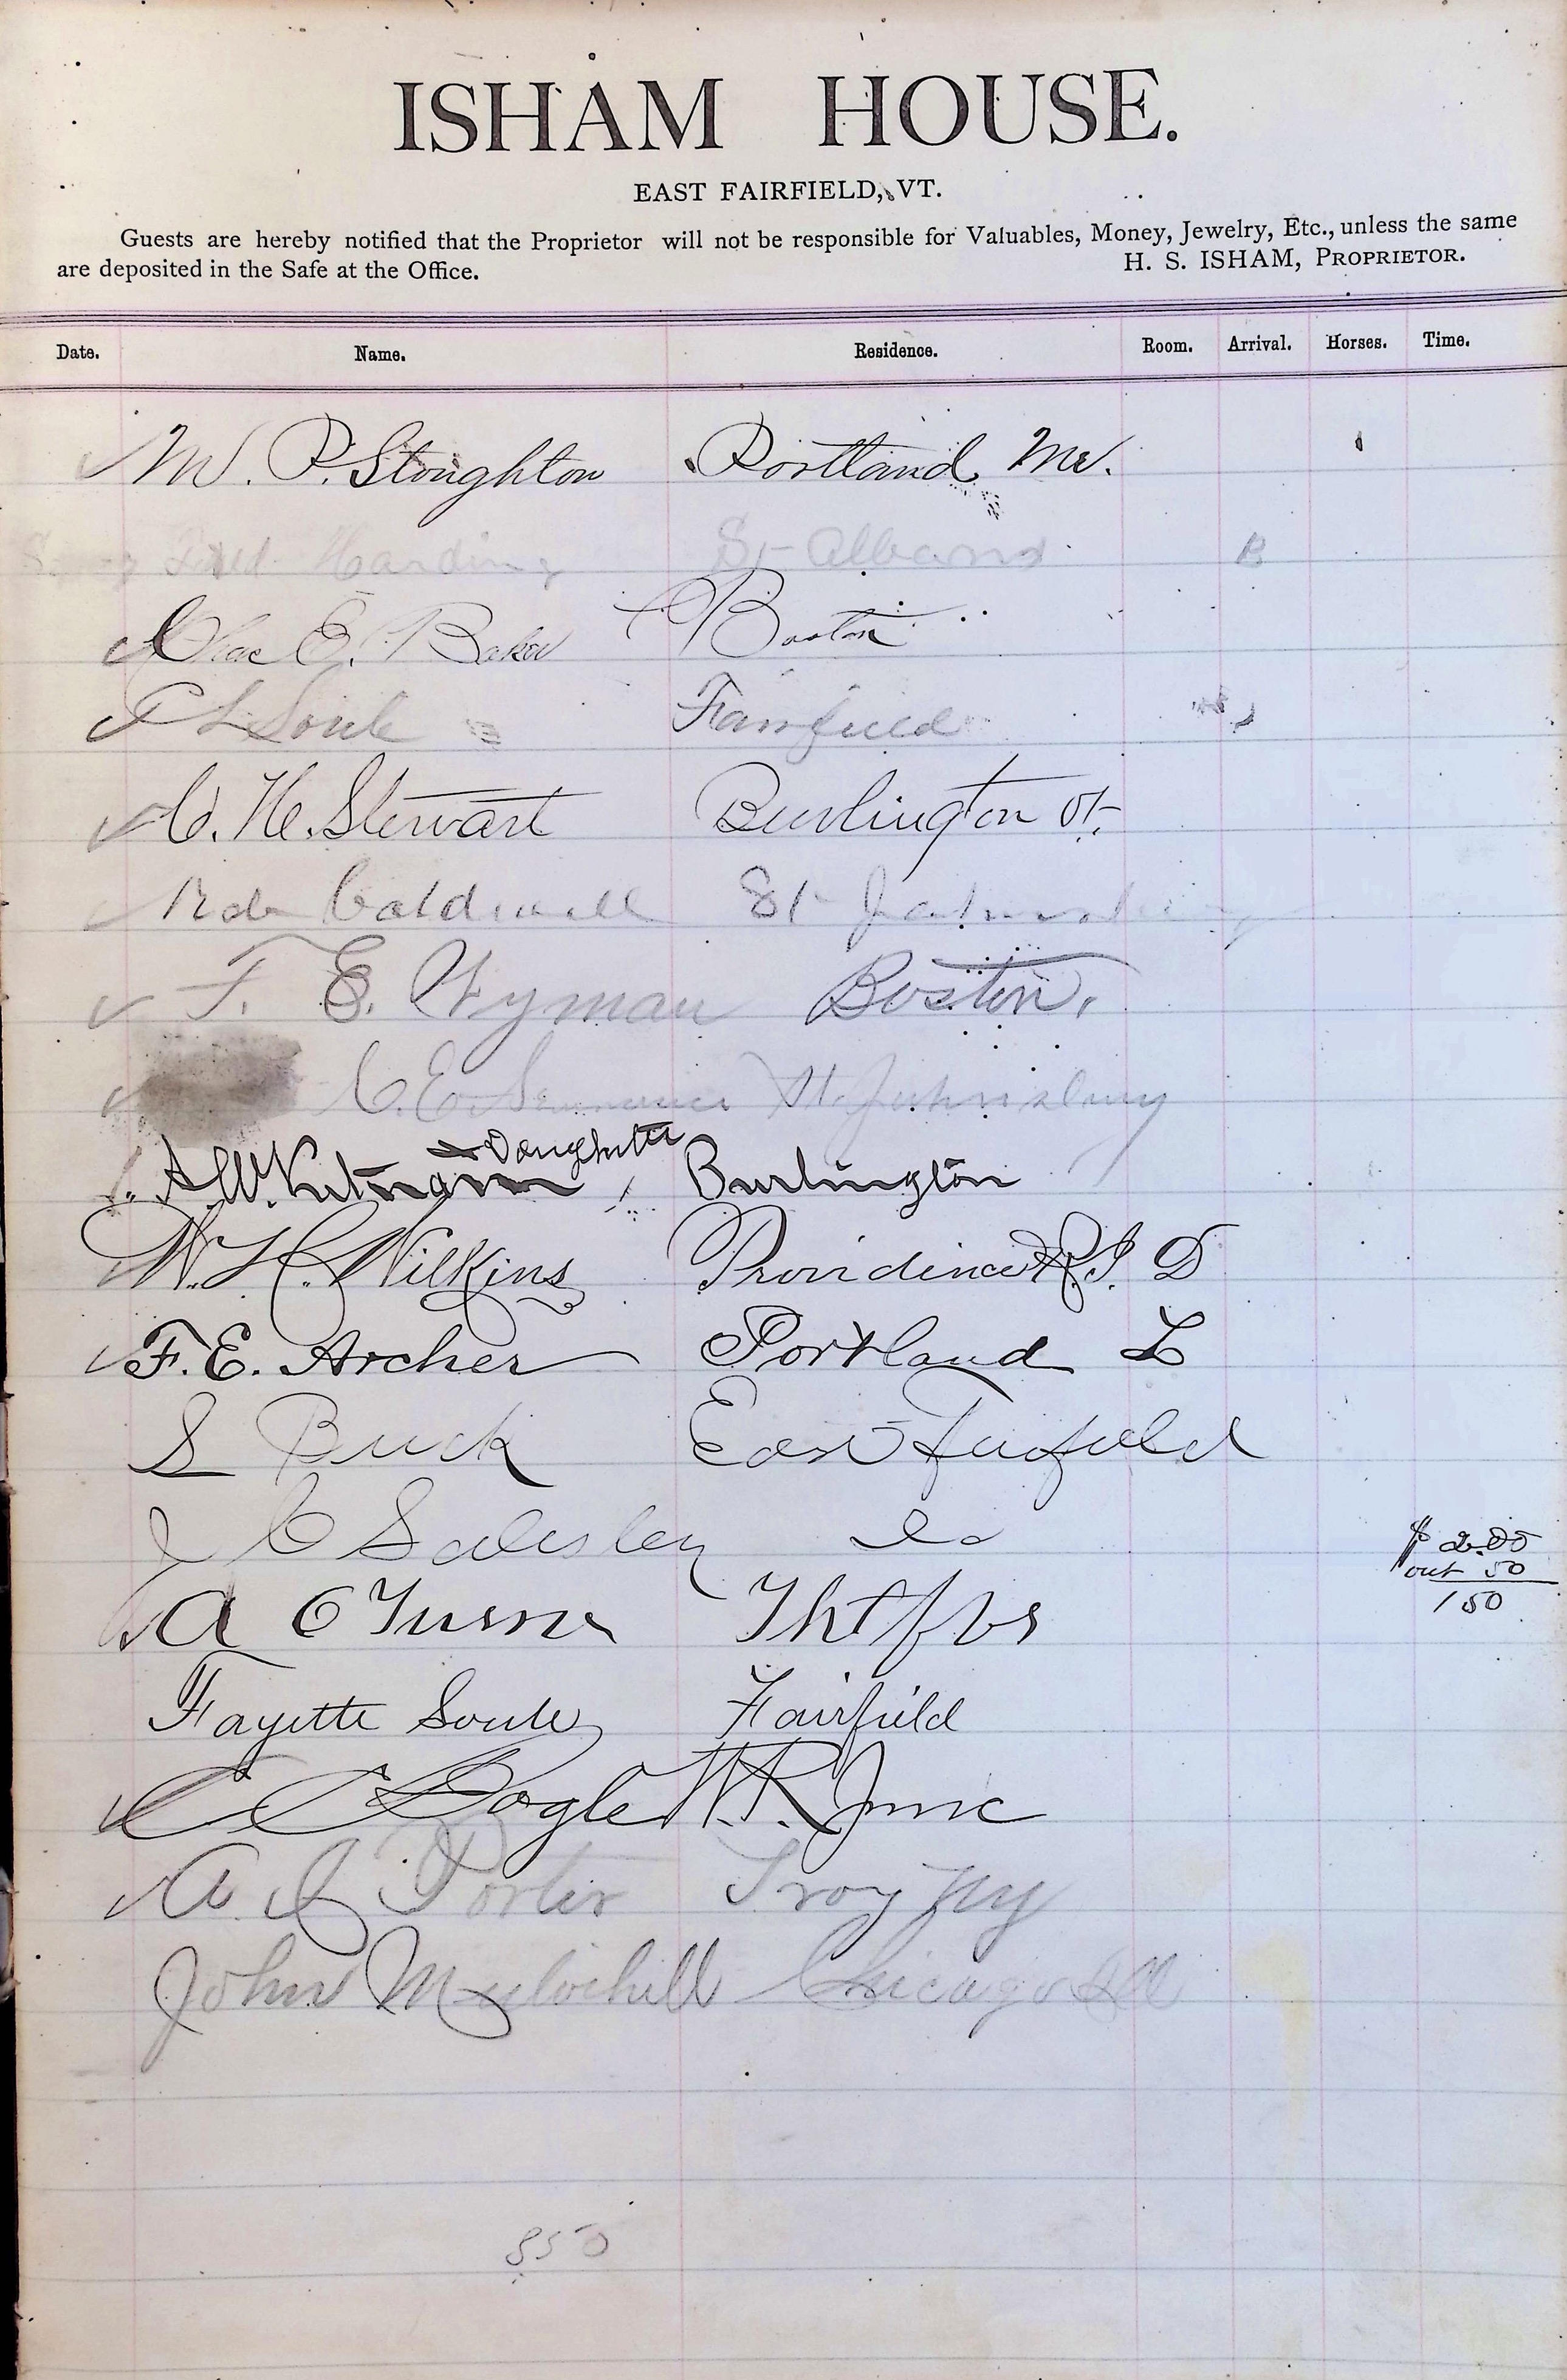 ISHAM HOUSE.
EAST FAIRFIELD, VT.
Guests are hereby notified that the Proprietor will not be responsible for Valuables, Money, Jewelry, Etc., unless the same
are deposited in the Safe at the Office. H. S. ISHAM, PROPRIETOR.
Date. Name. Residence. Room. Arrival. Horses. Time.
M. P. Stoughton Portland Me.
Fred Harding St Albans B
Chas E. Baker Boston
P L Soule Fairfield
C. H. Stewart Burlington Vt.
Rob Caldwell St Johnsbury
F. E. Wyman Boston.
C. E. St. Johnsbury
& Daughter
A. W. Putnam Burlington
W. H. Wilkins Providence R. I. D
F. E. Archer Portland L
S Buck East Fairfield
J C Salesley Do
$ 2.00
out 50
1 50
A C Turner
Fayette Soule Fairfield
C C Bogle W. R. Junc
A Porter Troy NY
John Mulvehill Chicago Ill
850